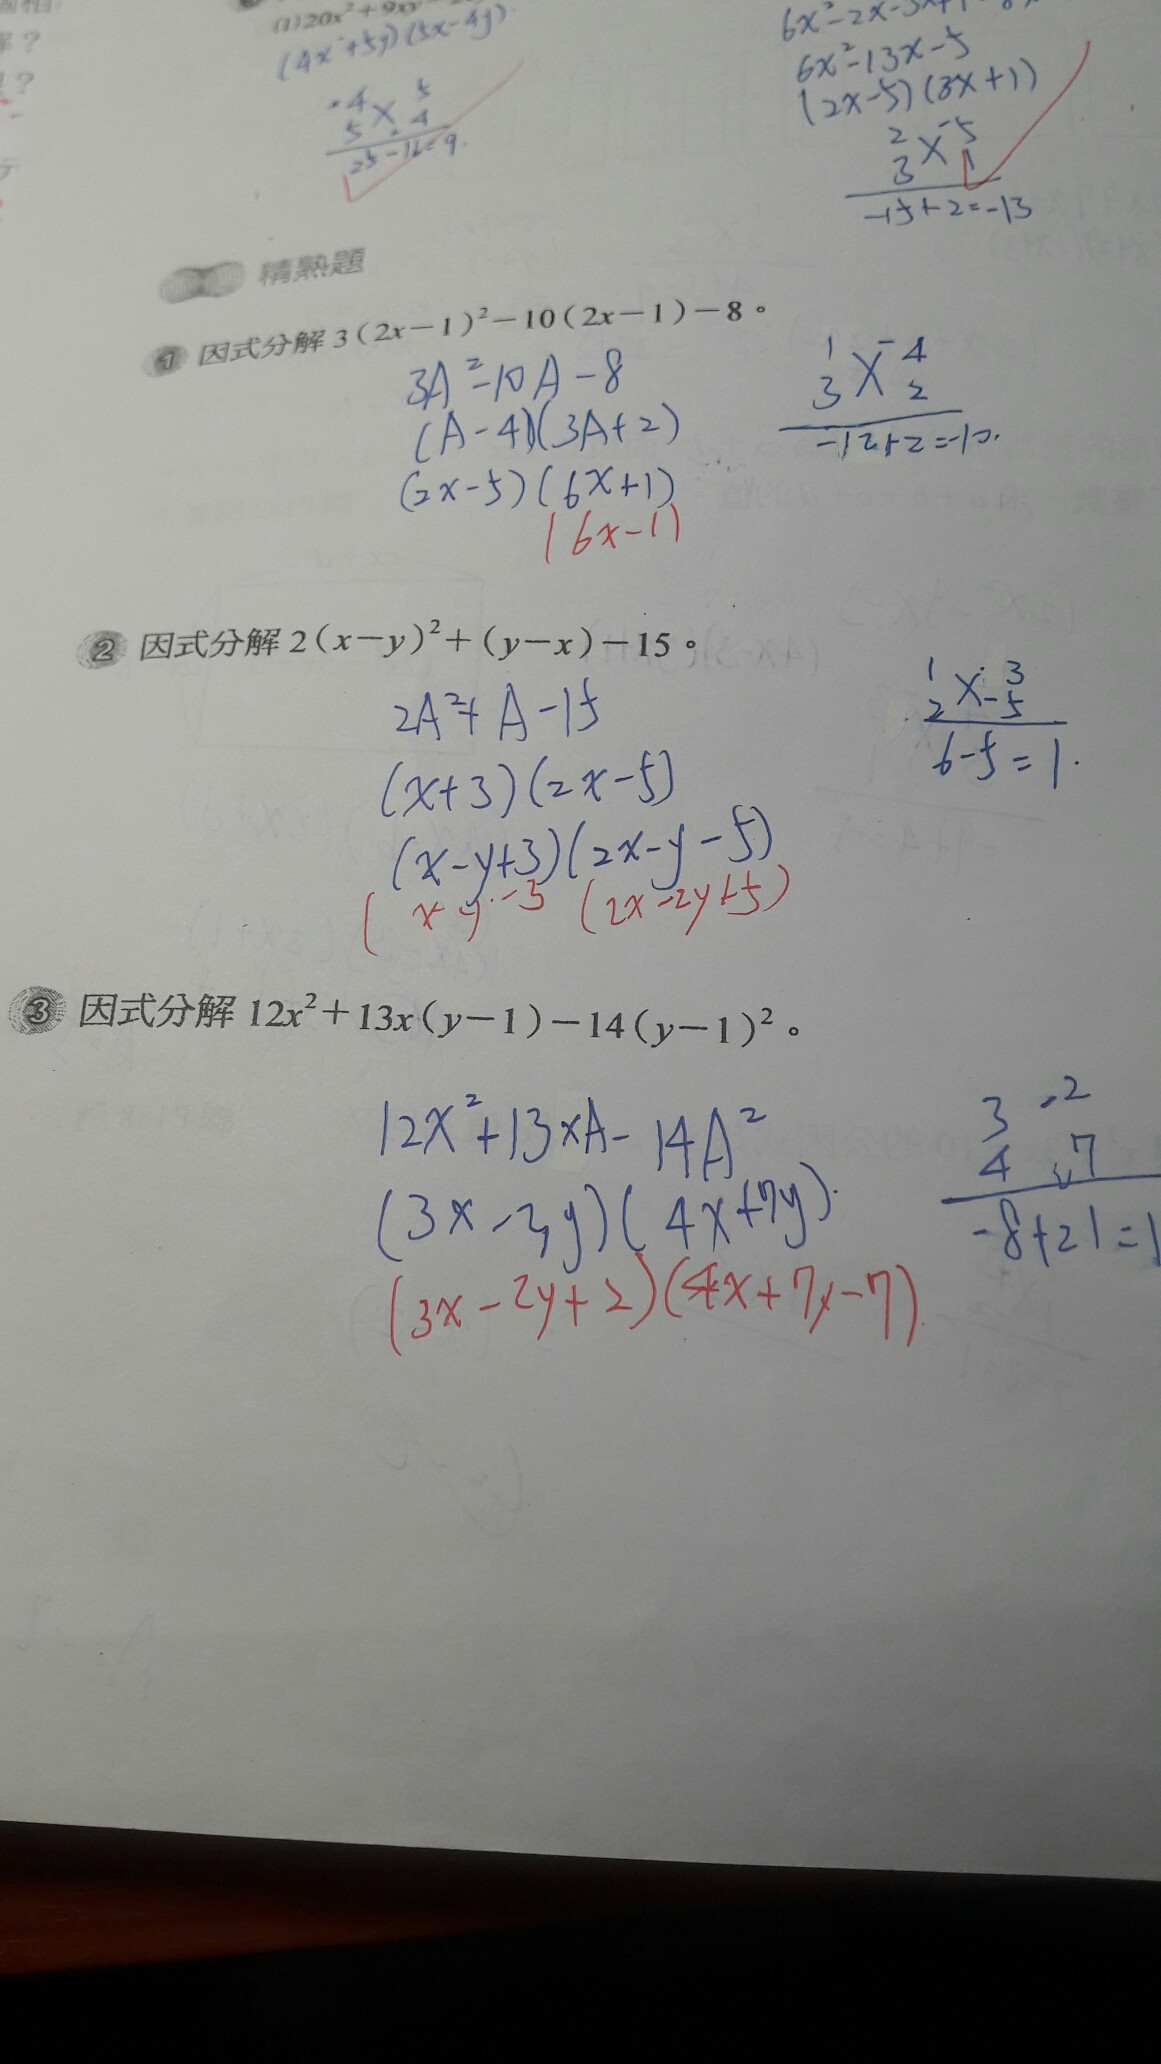 (1)20x²+9xy
(4x+5y)(5x-4y)
4 5
5 × -4
25-16=9.
6x²-2x-3x+1
6x²-13x-5
(2x-5)(3x+1)
2 -5
3 × 1
-15+2=-13
精熟題
1 因式分解3(2x-1)²-10(2x-1)-8。
3A²-10A-8
(A-4)(3A+2)
(2x-5)(6x+1)
(6x-1)
1 -4
3 × 2
-12+2=-10.
2 因式分解2(x-y)²+(y-x)-15。
2A²+A-15
(x+3)(2x-5)
(x-y+3)(2x-y-5)
(x-y-3 (2x-2y+5)
1 3
2 × -5
6-5=1.
3 因式分解12x²+13x(y-1)-14(y-1)²。
12x²+13xA-14A²
(3x-2y)(4x+7y)
(3x-2y+2)(4x+7y-7)
3 -2
4 7
-8+21=1